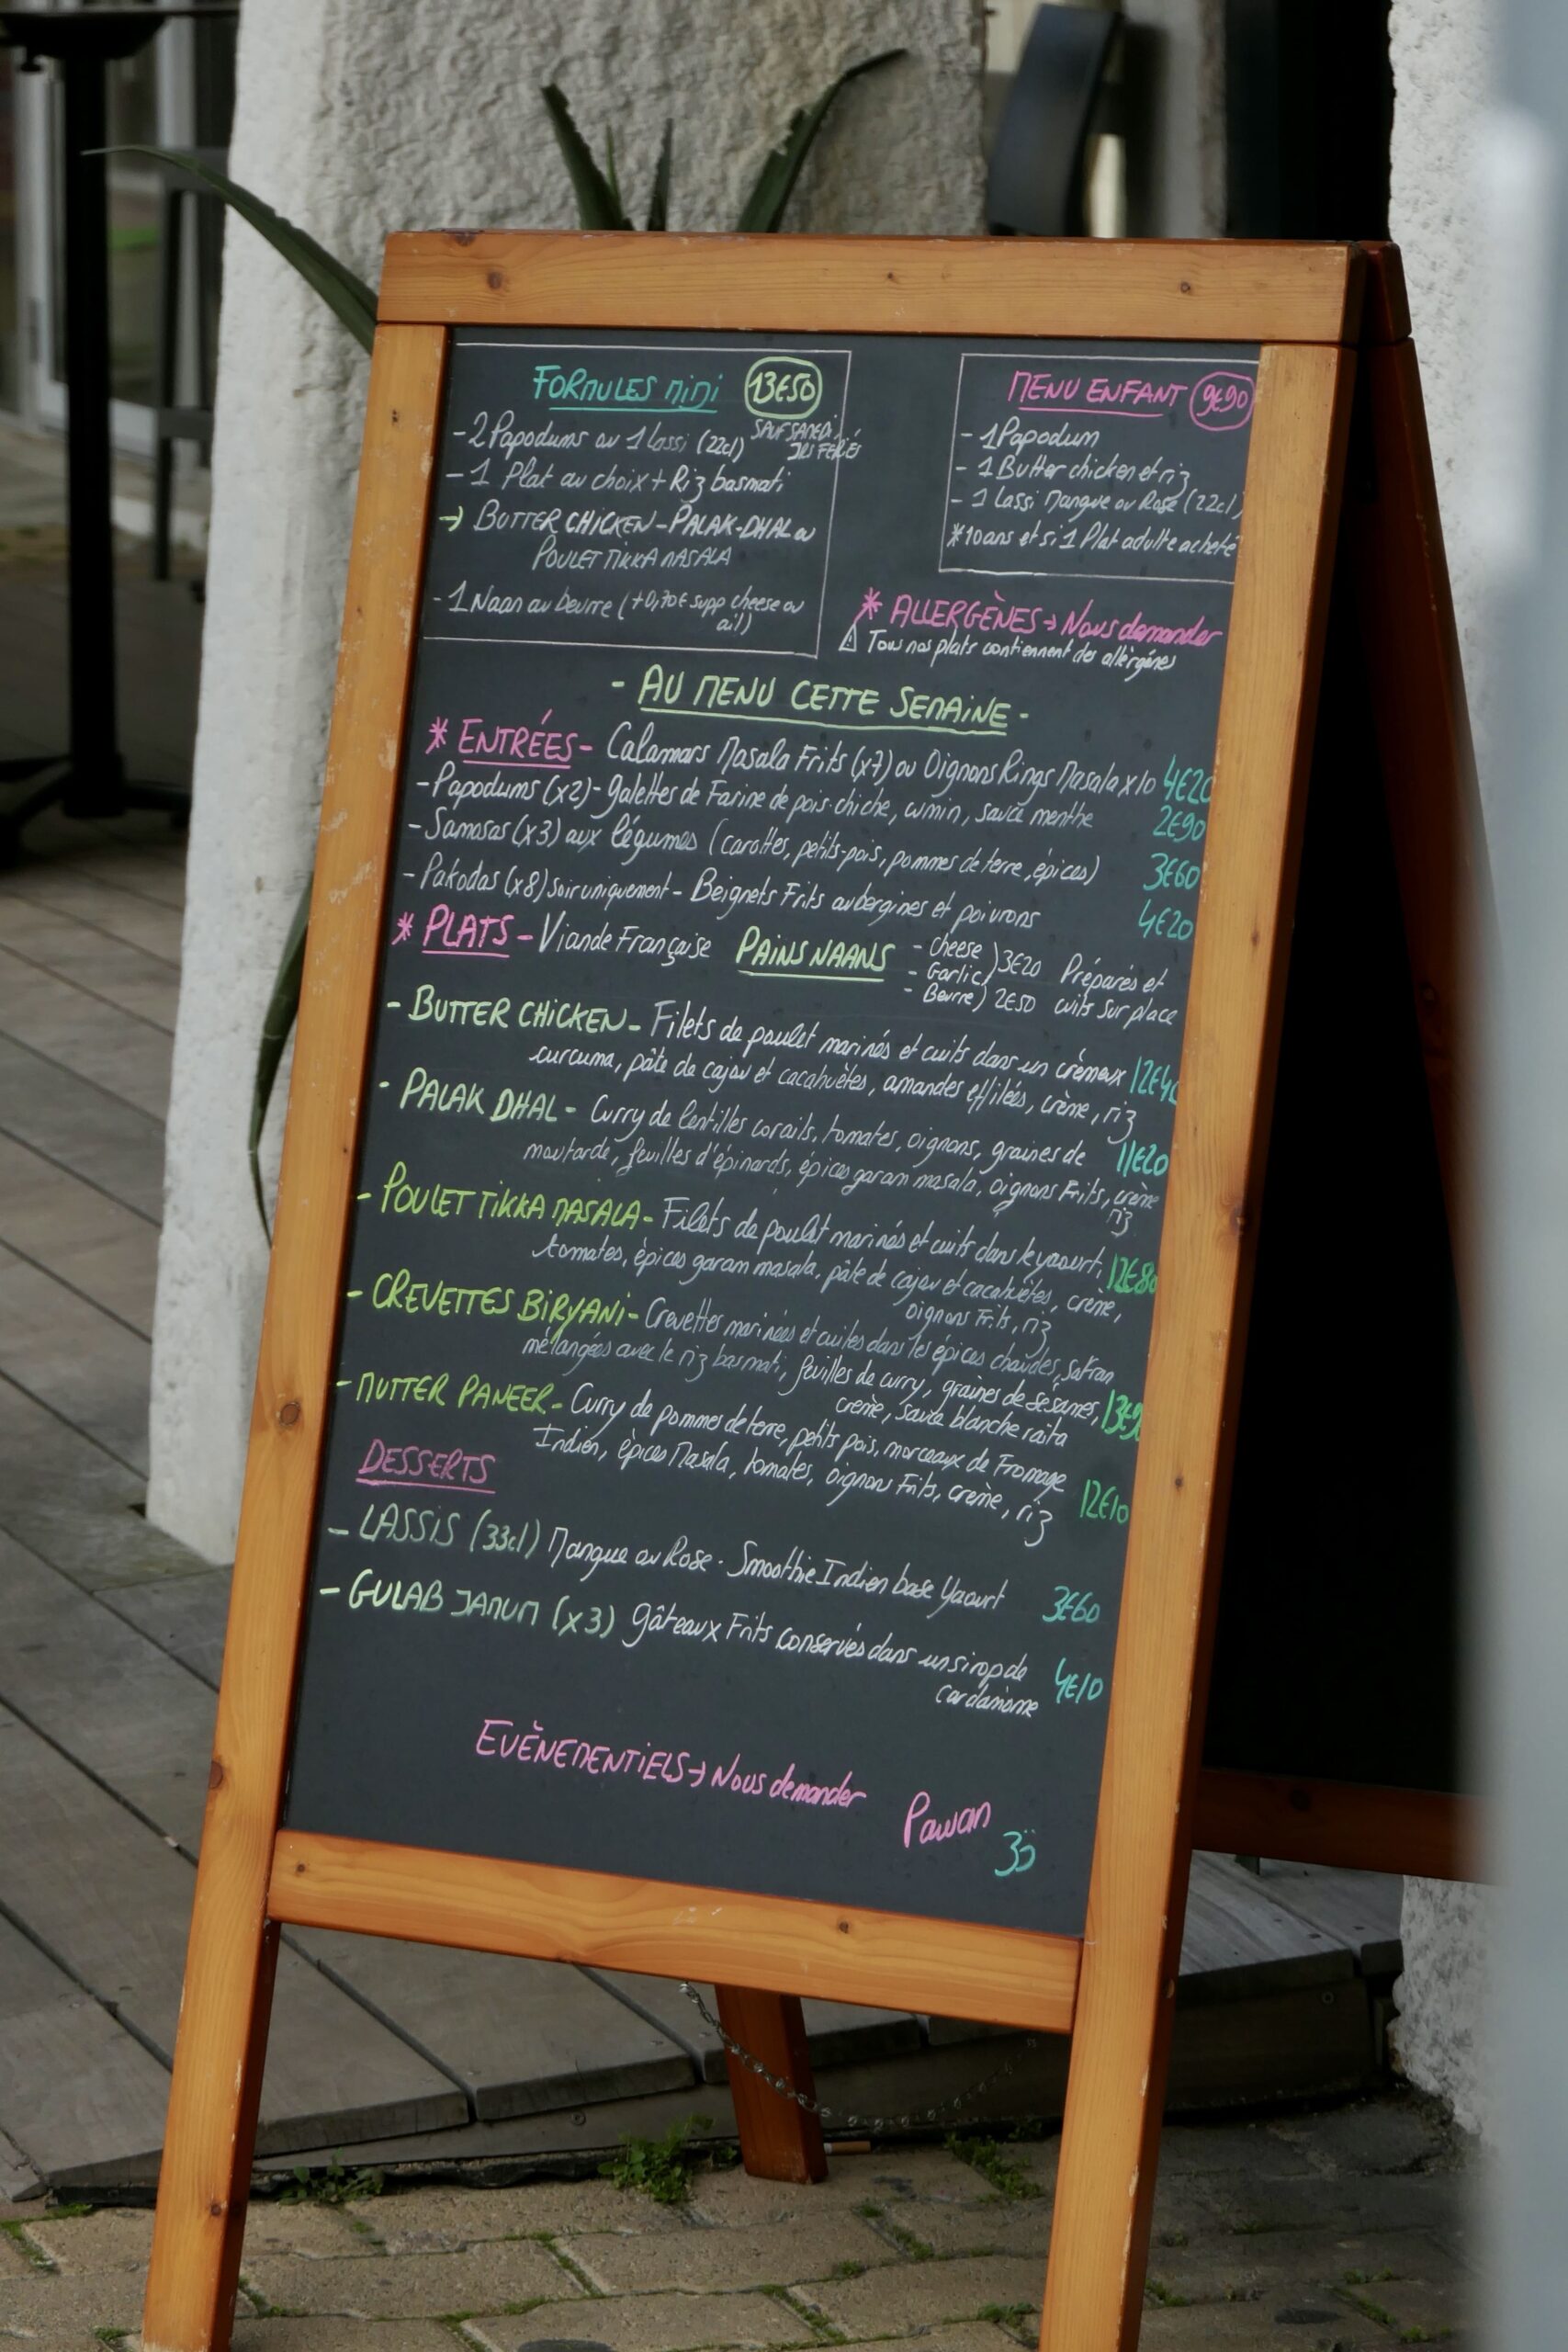 FORMULES MIDI 13€50
SAUF SAMEDI,
JRS FERIÉS
- 2 Papodums ou 1 lassi (22cl)
- 1 Plat au choix + Riz basmati
→ BUTTER CHICKEN - PALAK-DHAL ou
POULET TIKKA MASALA
- 1 Naan au beurre (+0,70€ supp cheese ou
ail)
MENU ENFANT 9€90
- 1 Papodum
- 1 Butter chicken et riz
- 1 Lassi Mangue ou Rose (22cl)
*10 ans et si 1 Plat adulte acheté
* ALLERGÈNES → Nous demander
⚠ Tous nos plats contiennent des allergénes
- AU MENU CETTE SEMAINE -
* ENTRÉES - Calamars Masala Frits (x7) ou Oignons Rings Masala x10 4€20
- Papodums (x2) - galettes de Farine de pois-chiche, cumin, sauce menthe 2€90
- Samosas (x3) aux légumes (carottes, petits-pois, pommes de terre, épices) 3€60
- Pakodas (x8) soir uniquement - Beignets Frits aubergines et poivrons 4€20
* PLATS - Viande Française
PAINS NAANS
- Cheese ) 3€20
- Garlic )
- Beurre) 2€50
Préparés et
cuits sur place
- BUTTER CHICKEN - Filets de poulet marinés et cuits dans un crémeux 12€40
curcuma, pâte de cajou et cacahuètes, amandes effilées, crème, riz
- PALAK DHAL - Curry de lentilles corails, tomates, oignons, graines de 11€20
moutarde, feuilles d'épinards, épices garam masala, oignons Frits, crème
riz
- POULET TIKKA MASALA - Filets de poulet marinés et cuits dans le yaourt, 12€80
tomates, épices garam masala, pâte de cajou et cacahuètes, crème,
oignons Frits, riz
- CREVETTES BIRYANI - Crevettes marinées et cuites dans les épices chaudes, safran
mélangées avec le riz basmati, feuilles de curry, graines de sésames, 13€9
crème, sauce blanche raita
- MUTTER PANEER - Curry de pommes de terre, petits pois, morceaux de Fromage
Indien, épices Masala, tomates, oignons Frits, crème, riz 12€10
DESSERTS
- LASSIS (33cl) Mangue ou Rose - Smoothie Indien base Yaourt 3€60
- GULAB JAMUM (x3) gâteaux Frits conservés dans un sirop de 4€10
Cardamome
EVÈNEMENTIELS → Nous demander
Pawan